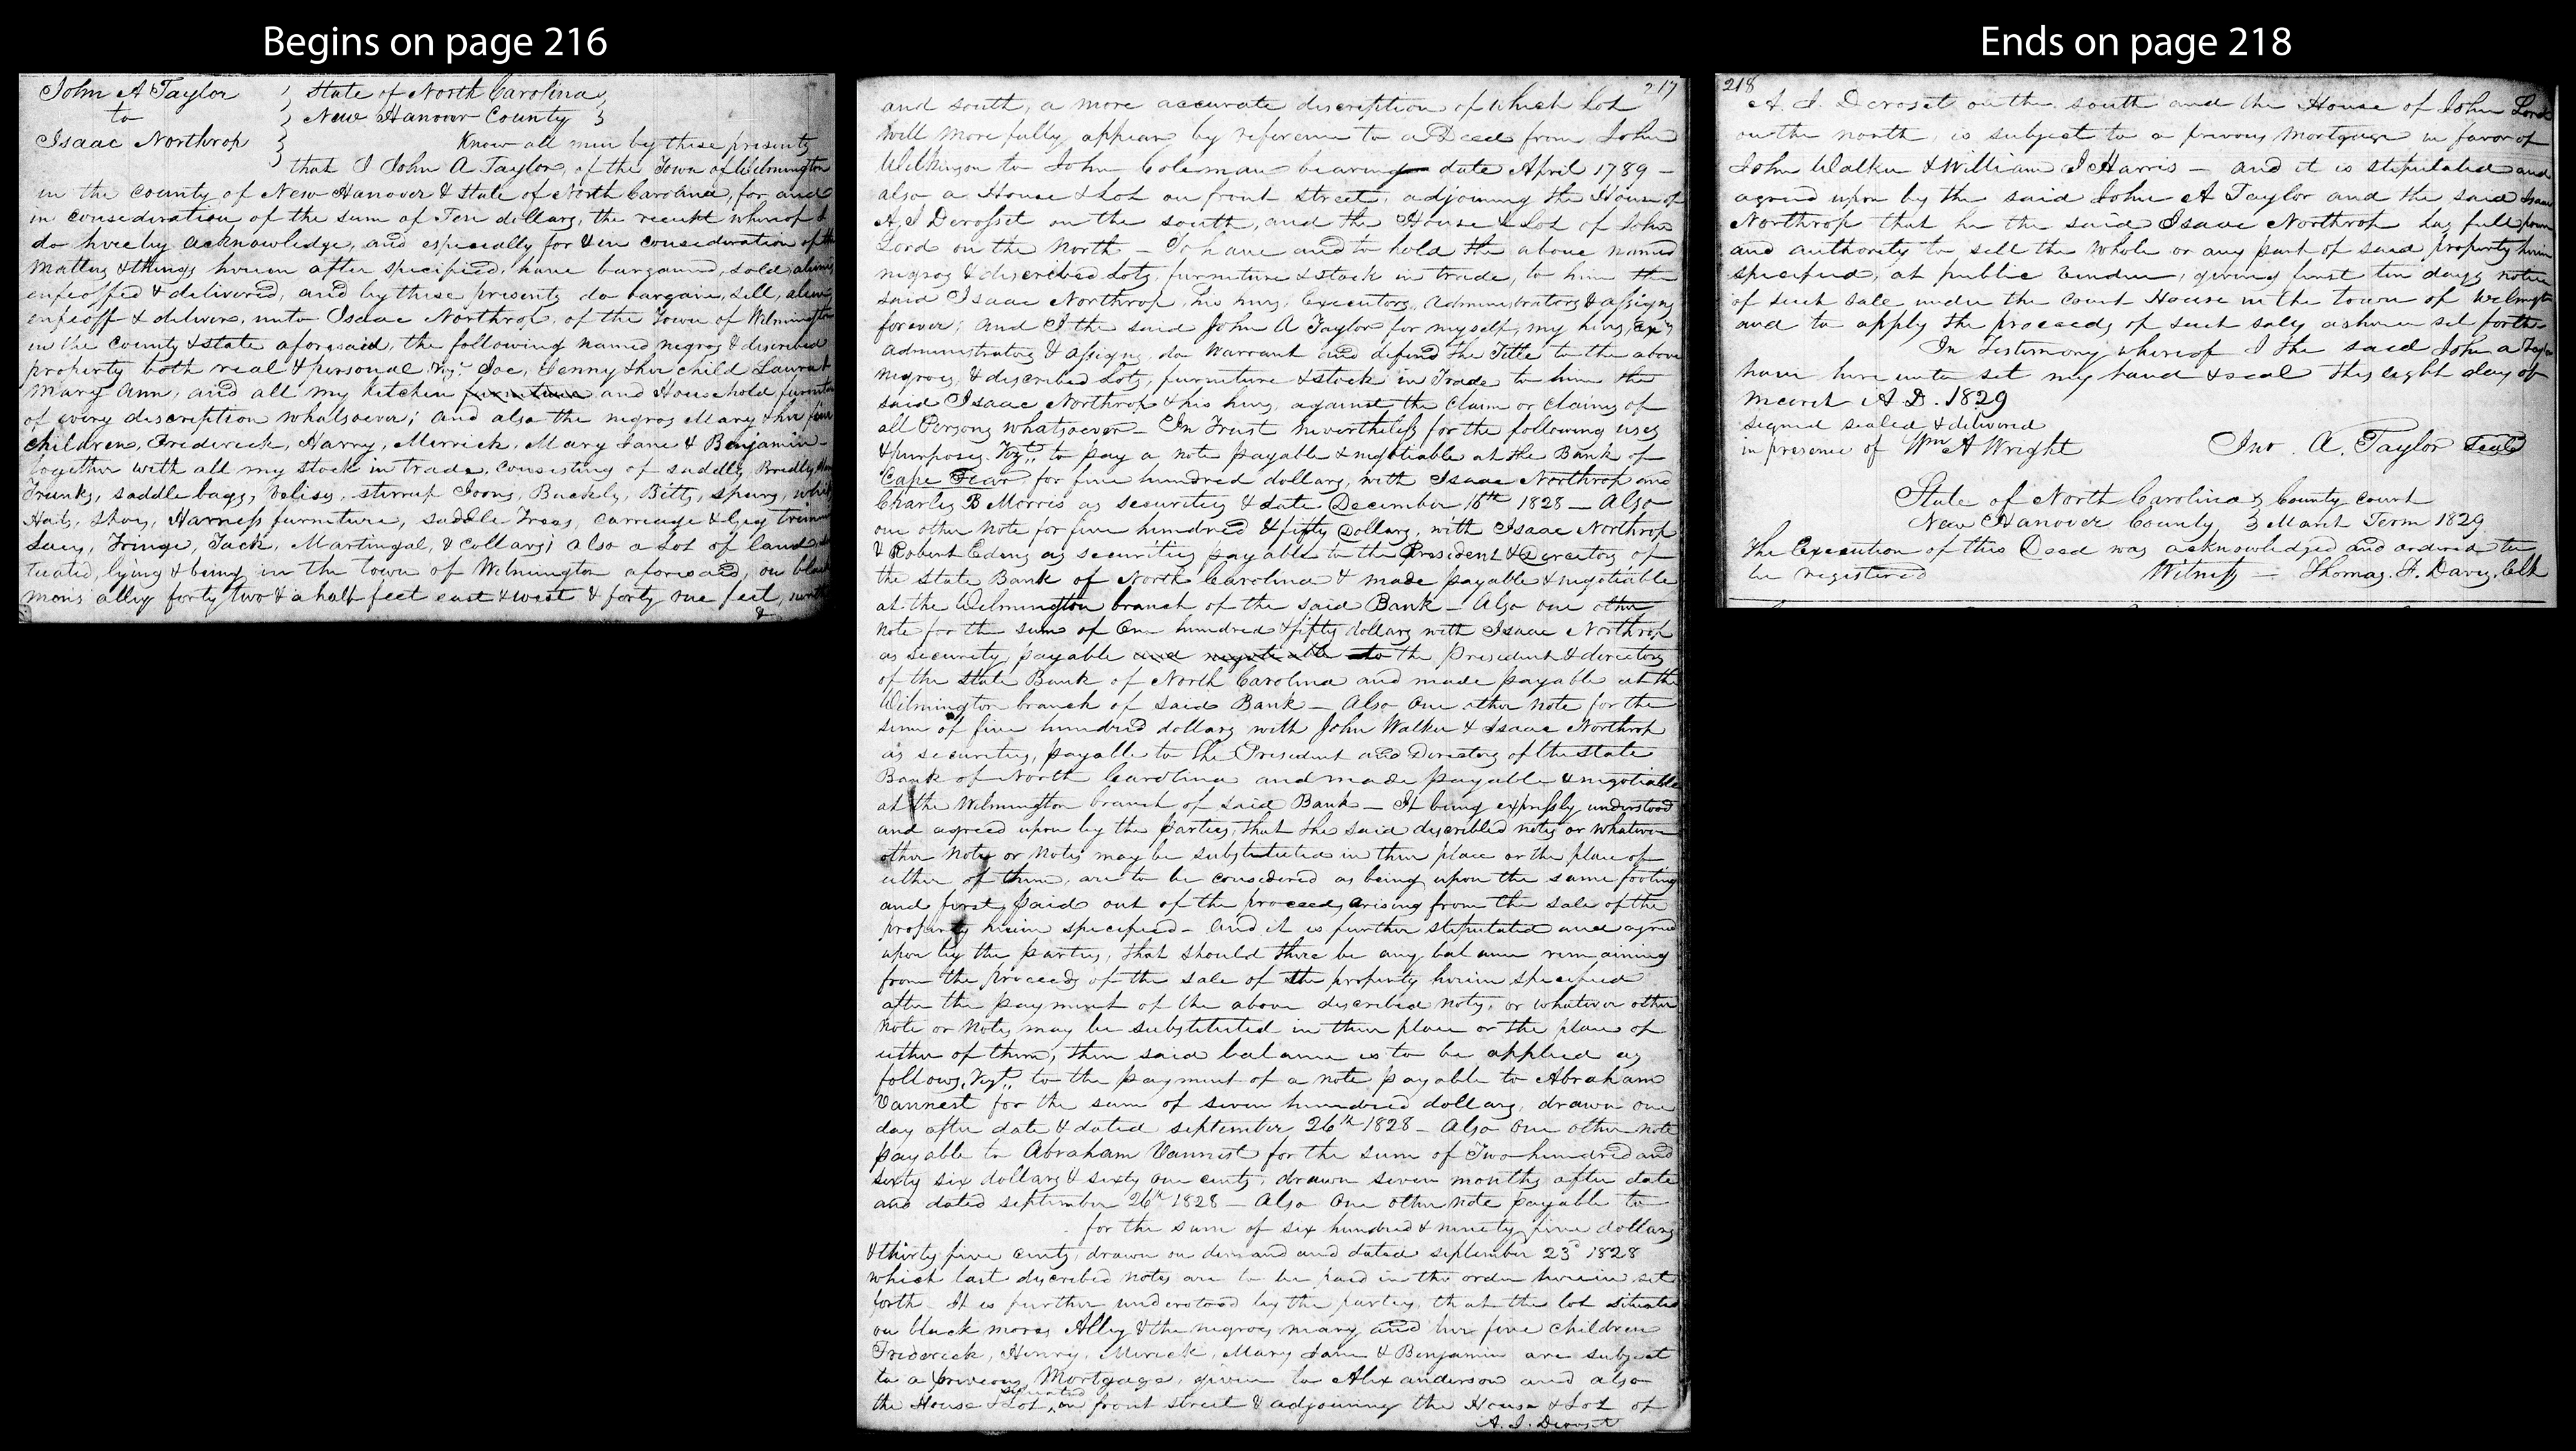 Begins on page 216
John A Taylor
to
Isaac Northrop
State of North Carolina
New Hanover County
Know all men by these presents
that I John A Taylor, of the Town of Wilmington
in the county of New Hanover & State of North Carolina, for and
in consideration of the sum of Ten dollars, the receipt whereof I
do hereby acknowledge, and especially for & in consideration of the
matters & things herein after specified, have bargained, sold, aliened
enfeoffed & delivered, and by these presents do bargain, sell, alien,
enfeoff & deliver, unto Isaac Northrop, of the Town of Wilmington
in the County & state aforesaid, the following named negroes & discribed
property both real & personal, Viz. Joe, Jenny & her child Laura &
Mary Ann, and all my kitchen furniture and Household furniture
of every discription whatsoever; and also the negroes Mary & her five
children, Frederick, Harry, Merrick, Mary Jane & Benjamin -
together with all my stock in trade, consisting of saddles, Bridles,
Trunks, saddle bags, Valises, stirrup Irons, Buckels, Bitts, spurs, whips
Hats, shoes, Harness furniture, saddle Trees, carriage & Gig trimmings
Lacy, Fringe, Tack, Martingal, & Collars; also a Lot of land
tuated, lying & being in the town of Wilmington aforesaid, on black
mores alley forty two & a half feet east & west & forty one feet, north
&
217
and south, a more accurate discription of which Lot
will more fully appear by reference to a Deed from John
Wilkinson to John Coleman bearing date April 1789 -
also a House & Lot on front street, adjoining the House of
A. J Derosset on the south, and the House & Lot of John
Lord on the North - To have and to hold the above named
negroes & discribed Lots, furniture & stock in trade, to him the
said Isaac Northrop, his heirs, Executors, Administrators & assigns
forever; and I the said John A Taylor for myself, my heirs, Exrs
administrators & assigns, do Warrant and defend the Title to the above
negroes, & discribed Lots, furniture & stock in Trade to him the
said Isaac Northrop & his heirs, against the claim or claims of
all Persons whatsoever - In Trust nevertheless for the following uses
& purposes. Vizt. to pay a note payable & negotiable at the Bank of
Cape Fear for five hundred dollars, with Isaac Northrop and
Charles B Morris as securities & date December 16th 1828 - Also
one other note for five hundred & fifty Dollars, with Isaac Northrop
& Robert Edens as securities payable to the President & Directors of
the State Bank of North Carolina & made payable & negotiable
at the Wilmington branch of the said Bank - Also one other
note for the sum of One hundred & fifty dollars with Isaac Northrop
as security, payable and negotiable to the President & directors
of the State Bank of North Carolina and made payable at the
Wilmington branch of said Bank - Also One other note for the
sum of five hundred dollars with John Walker & Isaac Northrop
as securities, payable to the President and Directors of the state
Bank of North Carolina and made payable & negotiable
at the Wilmington branch of said Bank - It being expressly understood
and agreed upon by the parties, that the said discribed notes or whatever
other Note or Notes may be substituted in their place or the place of
either of them, are to be considered as being upon the same footing
and first paid out of the proceeds arising from the sale of the
property herein specified - and it is further stipulated and agreed
upon by the parties, that should there be any balance remaining
from the proceeds of the sale of the property herein specified
after the payment of the above discribed notes, or whatever other
note or Notes may be substituted in their place or the place of
either of them, then said balance is to be applied as
follows, Vizt. to the payment of a note payable to Abraham
Vannest for the sum of seven hundred dollars, drawn one
day after date & dated september 26th 1828 - Also One other note
payable to Abraham Vannest for the sum of Two hundred and
sixty six dollars & sixty one cents, drawn seven months after date
and dated september 26th 1828 - Also One other note payable to
for the sum of six hundred & ninety five dollars
& thirty five cents, drawn on demand and dated september 23d 1828
which last discribed notes are to be paid in the order herein set
forth. It is further understood by the parties, that the lot situated
on black mores Alley & the negroes mary and her five children
Frederick, Henry, Merick, Mary Jane & Benjamin are subject
to a previous Mortgage, given to Alex anderson and also
the House & Lot, situated on front street & adjoining the House & Lot of
A. J. Derosset
Ends on page 218
218
A. J. Derosset on the south and the House of John Lord
on the north, is subject to a previous mortgage in favor of
John Walker & William J Harris - and it is stipulated and
agreed upon by the said John A Taylor and the said Isaac
Northrop that he the said Isaac Northrop has full power
and authority to sell the whole or any part of said property herein
specified, at public vendue, giving first ten days notice
of such sale under the Court House in the town of Wilmington
and to apply the proceeds of such sales as herein set forth.
In Testimony whereof I the said John A Taylor
have here unto set my hand & seal this eight day of
march A.D. 1829
signed sealed & delivered
in presence of Wm A Wright
Jno. A. Taylor Seal
State of North Carolina } County court
New Hanover County } March Term 1829
The Execution of this Deed was acknowledged and ordered to
be registered
Witness - Thomas. F. Davis, Clk